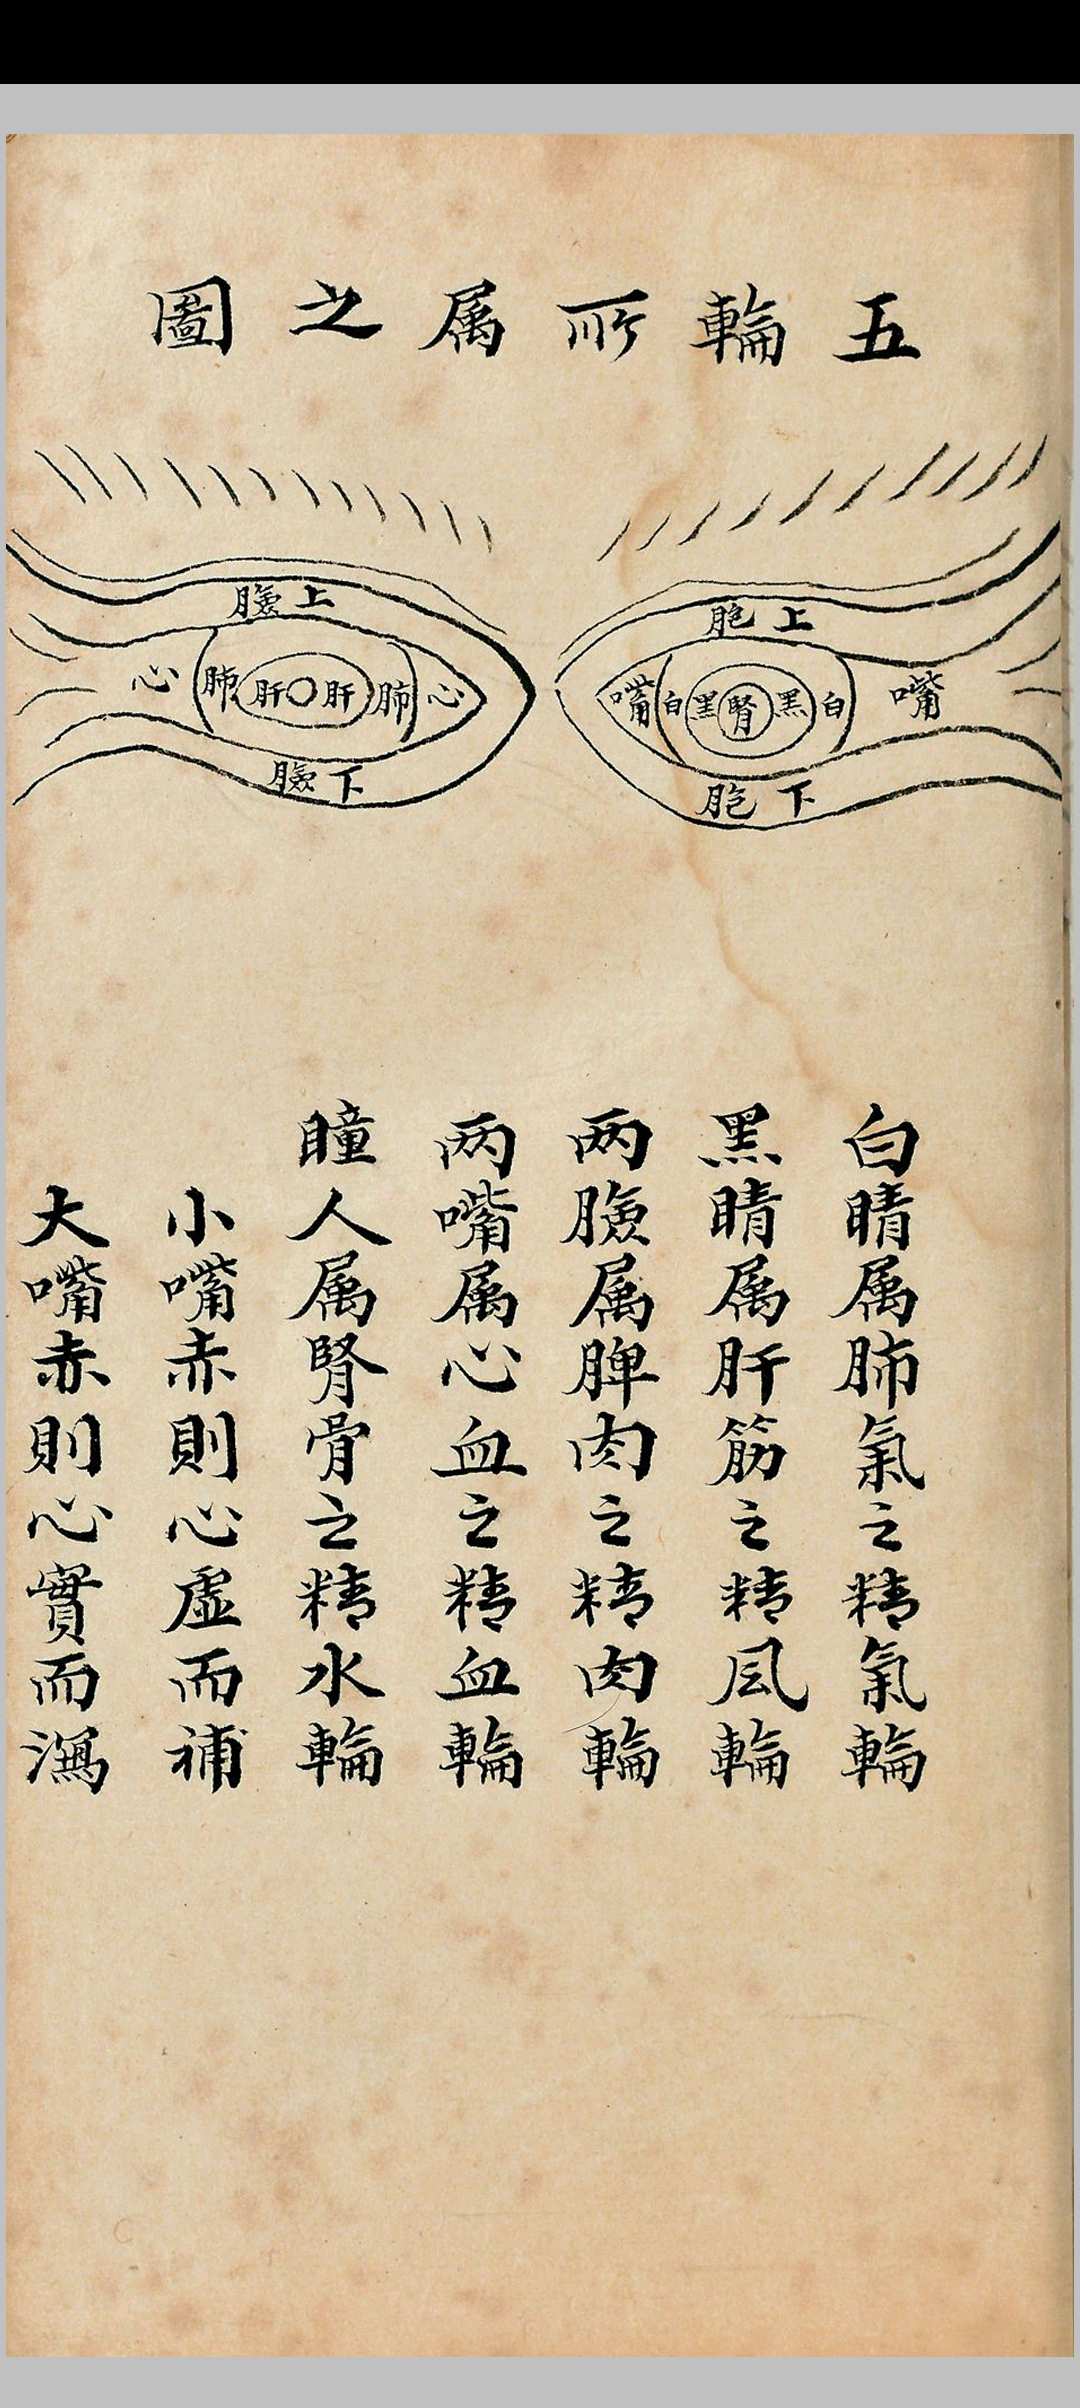 五輪所属之圖
胞上
嘴白黑腎黑白嘴
胞下
臉上
心肺肝肝肺心
臉下
白睛属肺氣之精氣輪
黑睛属肝筋之精風輪
两臉属脾肉之精肉輪
两嘴属心血之精血輪
瞳人属腎骨之精水輪
小嘴赤則心虛而補
大嘴赤則心實而瀉